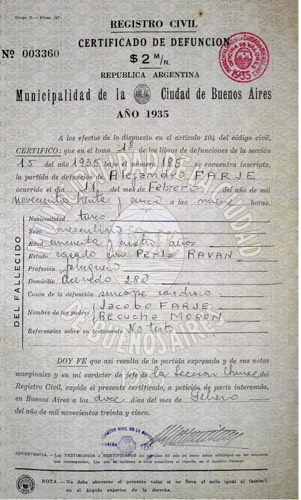 REGISTRO CIVIL
CERTIFICADO DE DEFUNCION
Nº 003360
$ 2 M/N.
REPUBLICA ARGENTINA
Municipalidad de la Ciudad de Buenos Aires
AÑO 1935
A los efectos de lo dispuesto en el artículo 104 del código civil,
CERTIFICO: que en el tomo 1º de los libros de defunciones de la sección
15 del año 1935 bajo el número 185 se encuentra inscripta,
la partida de defunción de Alejandro FARJE
ocurrido el día 11 del mes de Febrero del año de mil
novecientos treinta y cinco a las nueve horas.
DEL FALLECIDO
Nacionalidad turco
Sexo masculino
Edad cincuenta y cuatro años
Estado casado con Perla RAVAN
Profesión
Domicilio Acevedo 280
Causa de la defunción síncope cardíaco
Nombre de los padres Jacobo FARJE
MORON
Referencias sobre su testamento No testó
DOY FE que así resulta de la partida expresada y de sus notas
marginales y en mi carácter de jefe de la Sección
Registro Civil, expido el presente certificado, a petición de parte interesada,
en Buenos Aires a los doce días del mes de febrero
del año de mil novecientos treinta y cinco.
ADVERTENCIA.
NOTA. - No debe abonarse el presente valor si no lleva el sello igual al actual
en el ángulo superior de la derecha.